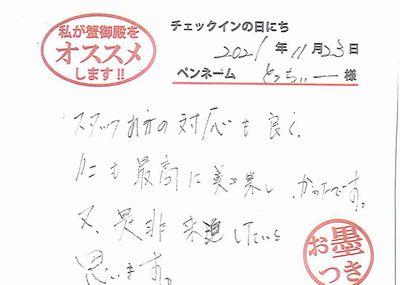 私が蟹御殿を
オススメ
します!!
チェックインの日にち
2021年11月23日
ペンネーム とっちぃー 様
スタッフの方の対応も良く、
カニも最高に美味し かったです。
又、是非 来 したいと
思います。
お墨
つき